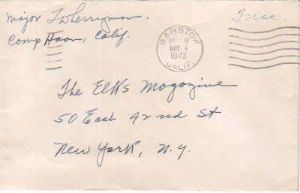 Major
Free
Camp Haan, Calif.
BARSTOW
1943
CALIF.
The Elks Magazine
50 East 42nd St
New York, N.Y.